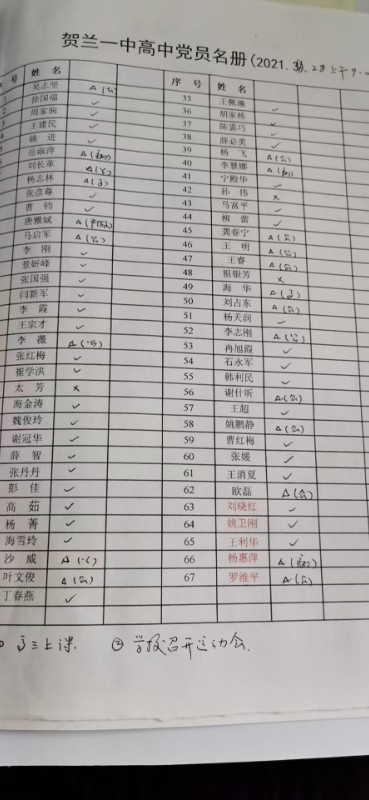 贺兰一中高中党员名册(2021.
号 姓 名 序 号 姓 名
吴志坚 △(公) 35 王佩瑜 ✓
徐国福 ✓ 36 胡家栋 ✓
周家驹 ✓ 37 陈雲巧 ✓
王建民 ✓ 38 薛必美 ✓
姚进 ✓ 39 杨飞 △(公)
岳淑萍 40 李慧娜
刘长革 41 宁殿华 ✓
杨志林 42 孙伟 ×
张彦尊 ✓ 43 马富平 ✓
曹钧 ✓ 44 柳蕾 ✓
唐雅斌 45 龚春宁 △(公)
马启军 △(公) 46 王明 △(公)
李刚 ✓ 47 王睿 △(公)
景妍峰 ✓ 48 祖银芳 ×
张国强 ✓ 49 海华
闫新军 ✓ 50 刘占东 △(公)
李霞 ✓ 51 杨天润 ✓
王宗才 ✓ 52 李志刚 △(公)
李薇 53 冉旭霞 ✓
张红梅 ✓ 54 石永军 ✓
崔学洪 ✓ 55 韩利民 ✓
太芳 × 56 谢什昕 △(公)
海金涛 ✓ 57 王超 ✓
魏俊玲 ✓ 58 姚鹏静 △(公)
谢冠华 ✓ 59 曹红梅 ✓
薛智 ✓ 60 张媛 ✓
张丹丹 ✓ 61 王消夏 ✓
彭佳 ✓ 62 欧磊 △(公)
高茹 ✓ 63 刘晓红 ✓
杨菁 ✓ 64 姚卫刚 ✓
海雪玲 ✓ 65 王利华 ✓
沙威 66 杨惠萍
叶文俊 △(公) 67 罗维平 △(公)
丁春燕 ✓
高三上课. ② 学校召开运动会.